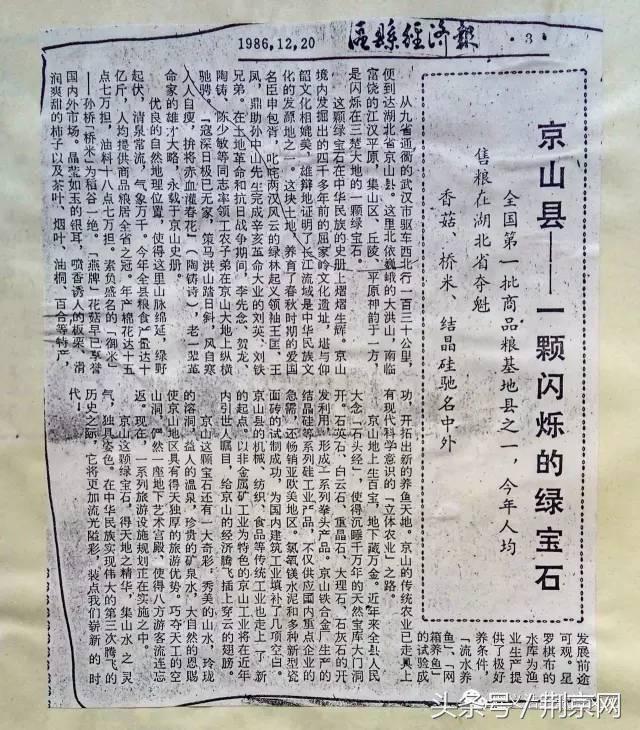 1986.12.20 区县经济报 ·3·
京山县——一颗闪烁的绿宝石
全国第一批商品粮基地县之一，今年人均
售粮在湖北省夺魁
香菇、桥米、结晶硅驰名中外
从九省通衢的武汉市驱车西北行一百三十公里，
便到达湖北省京山县。这里北依巍峨的大洪山，南临
富饶的江汉平原，集山区、丘陵、平原神韵于一方，
是闪烁在三楚大地的一颗绿宝石。
这颗绿宝石在中华民族的史册上熠熠生辉。京山
境内发掘出的四千多年前的屈家岭文化遗址，堪与仰
韶文化相媲美，雄辩地证明了长江流域是中华民族文
化的发源地之一。这块土地，养育了春秋时期的爱国
名臣申包胥，叱咤两汉风云的绿林起义领袖王匡、王
凤，鼎助孙中山先生完成辛亥革命大业的刘英、刘铁
兄弟。在土地革命和抗日战争期间，李先念、贺龙、
陶铸、陈少敏等同志率领工农子弟在京山大地上纵横
驰骋。“寇深日极已无家，策马洪山踏日斜，风自寒
人人自瘦，拚将赤血灌春花”（陶铸诗），老一辈革
命家的雄才大略，永载于京山史册。
优良的自然地理位置，使得这里山脉绵延，绿野
起伏，清泉常流，气象万千。今年全县粮食产量达十
亿斤，人均提供商品粮居全省之冠。年产棉花达十五
点七万担，油料十八点七万担。素负盛名的“御米”
——孙桥“桥米”为稻谷一绝。“燕牌”花菇早已享誉
国内外市场。晶莹如玉的银耳，喷香诱人的板栗、滑
润爽甜的柿子以及茶叶、烟叶、油桐、百合等特产，
发展前途
可观。星
罗棋布的
水库为渔
业生产提
供了极好
养条件，
“流水养
鱼”、“网
箱养鱼”
的试验成
功，开拓出新的养鱼天地。京山的传统农业已走兴上
有现代科学意识的“立体农业”之路。
京山地上生百宝，地下藏万金。近年来全县人民
大念“石头经”，使得沉睡千万年的天然宝库大门洞
开。石英石、白云石、重晶石、大理石、石灰石的开
发利用，形成了系列拳头产品。京山铁合金厂生产的
结晶硅等系列硅工业产品，不仅供应国内重点企业的
急需，还畅销亚欧美地区。氯氧镁水泥和多种新型瓷
面砖的试制成功，为国内建筑工业填补了几项空白。
京山县的机械、纺织、食品等传统工业也走上了新
的起点。以非金属矿工业为特色的京山工业将在近年
内引世人瞩目，给京山的经济腾飞插上穿云的翅膀。
京山这颗宝石还有一大奇彩。秀美的山水，玲珑
的溶洞，益人的温泉，珍贵的矿泉水，大自然的恩赐
使京山地区具有得天独厚的旅游优势。巧夺天工的空
山洞，俨然一座地下艺术宫殿，使得八方游客流连忘
返。现在，一系列旅游设施规划正在实施之中。
京山这颗绿宝石，得天地之精华，集山水之灵
气，独具姿色。在中华民族实现伟大的第三次腾飞的
历史之际，它将更加流光隘彩，装点我们崭新的时
代！
头条号 / 荆京网